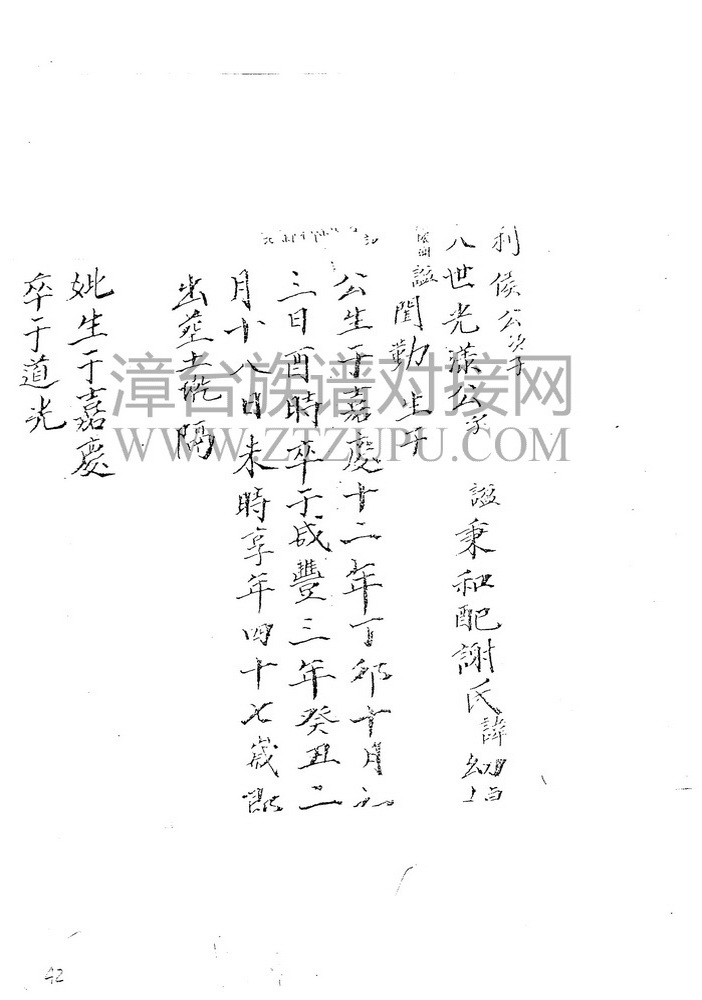 利侯公次子
八世光漢公 諡秉和配謝氏諱幼
諡閨勤生于
公生于嘉慶十二年丁卯十月初
三日酉時卒于咸豐三年癸丑二
月十八日未時享年四十七歲
出葬土 隔
妣生于嘉慶
卒于道光
漳台族谱对接网
WWW.ZTZUPU.COM
42